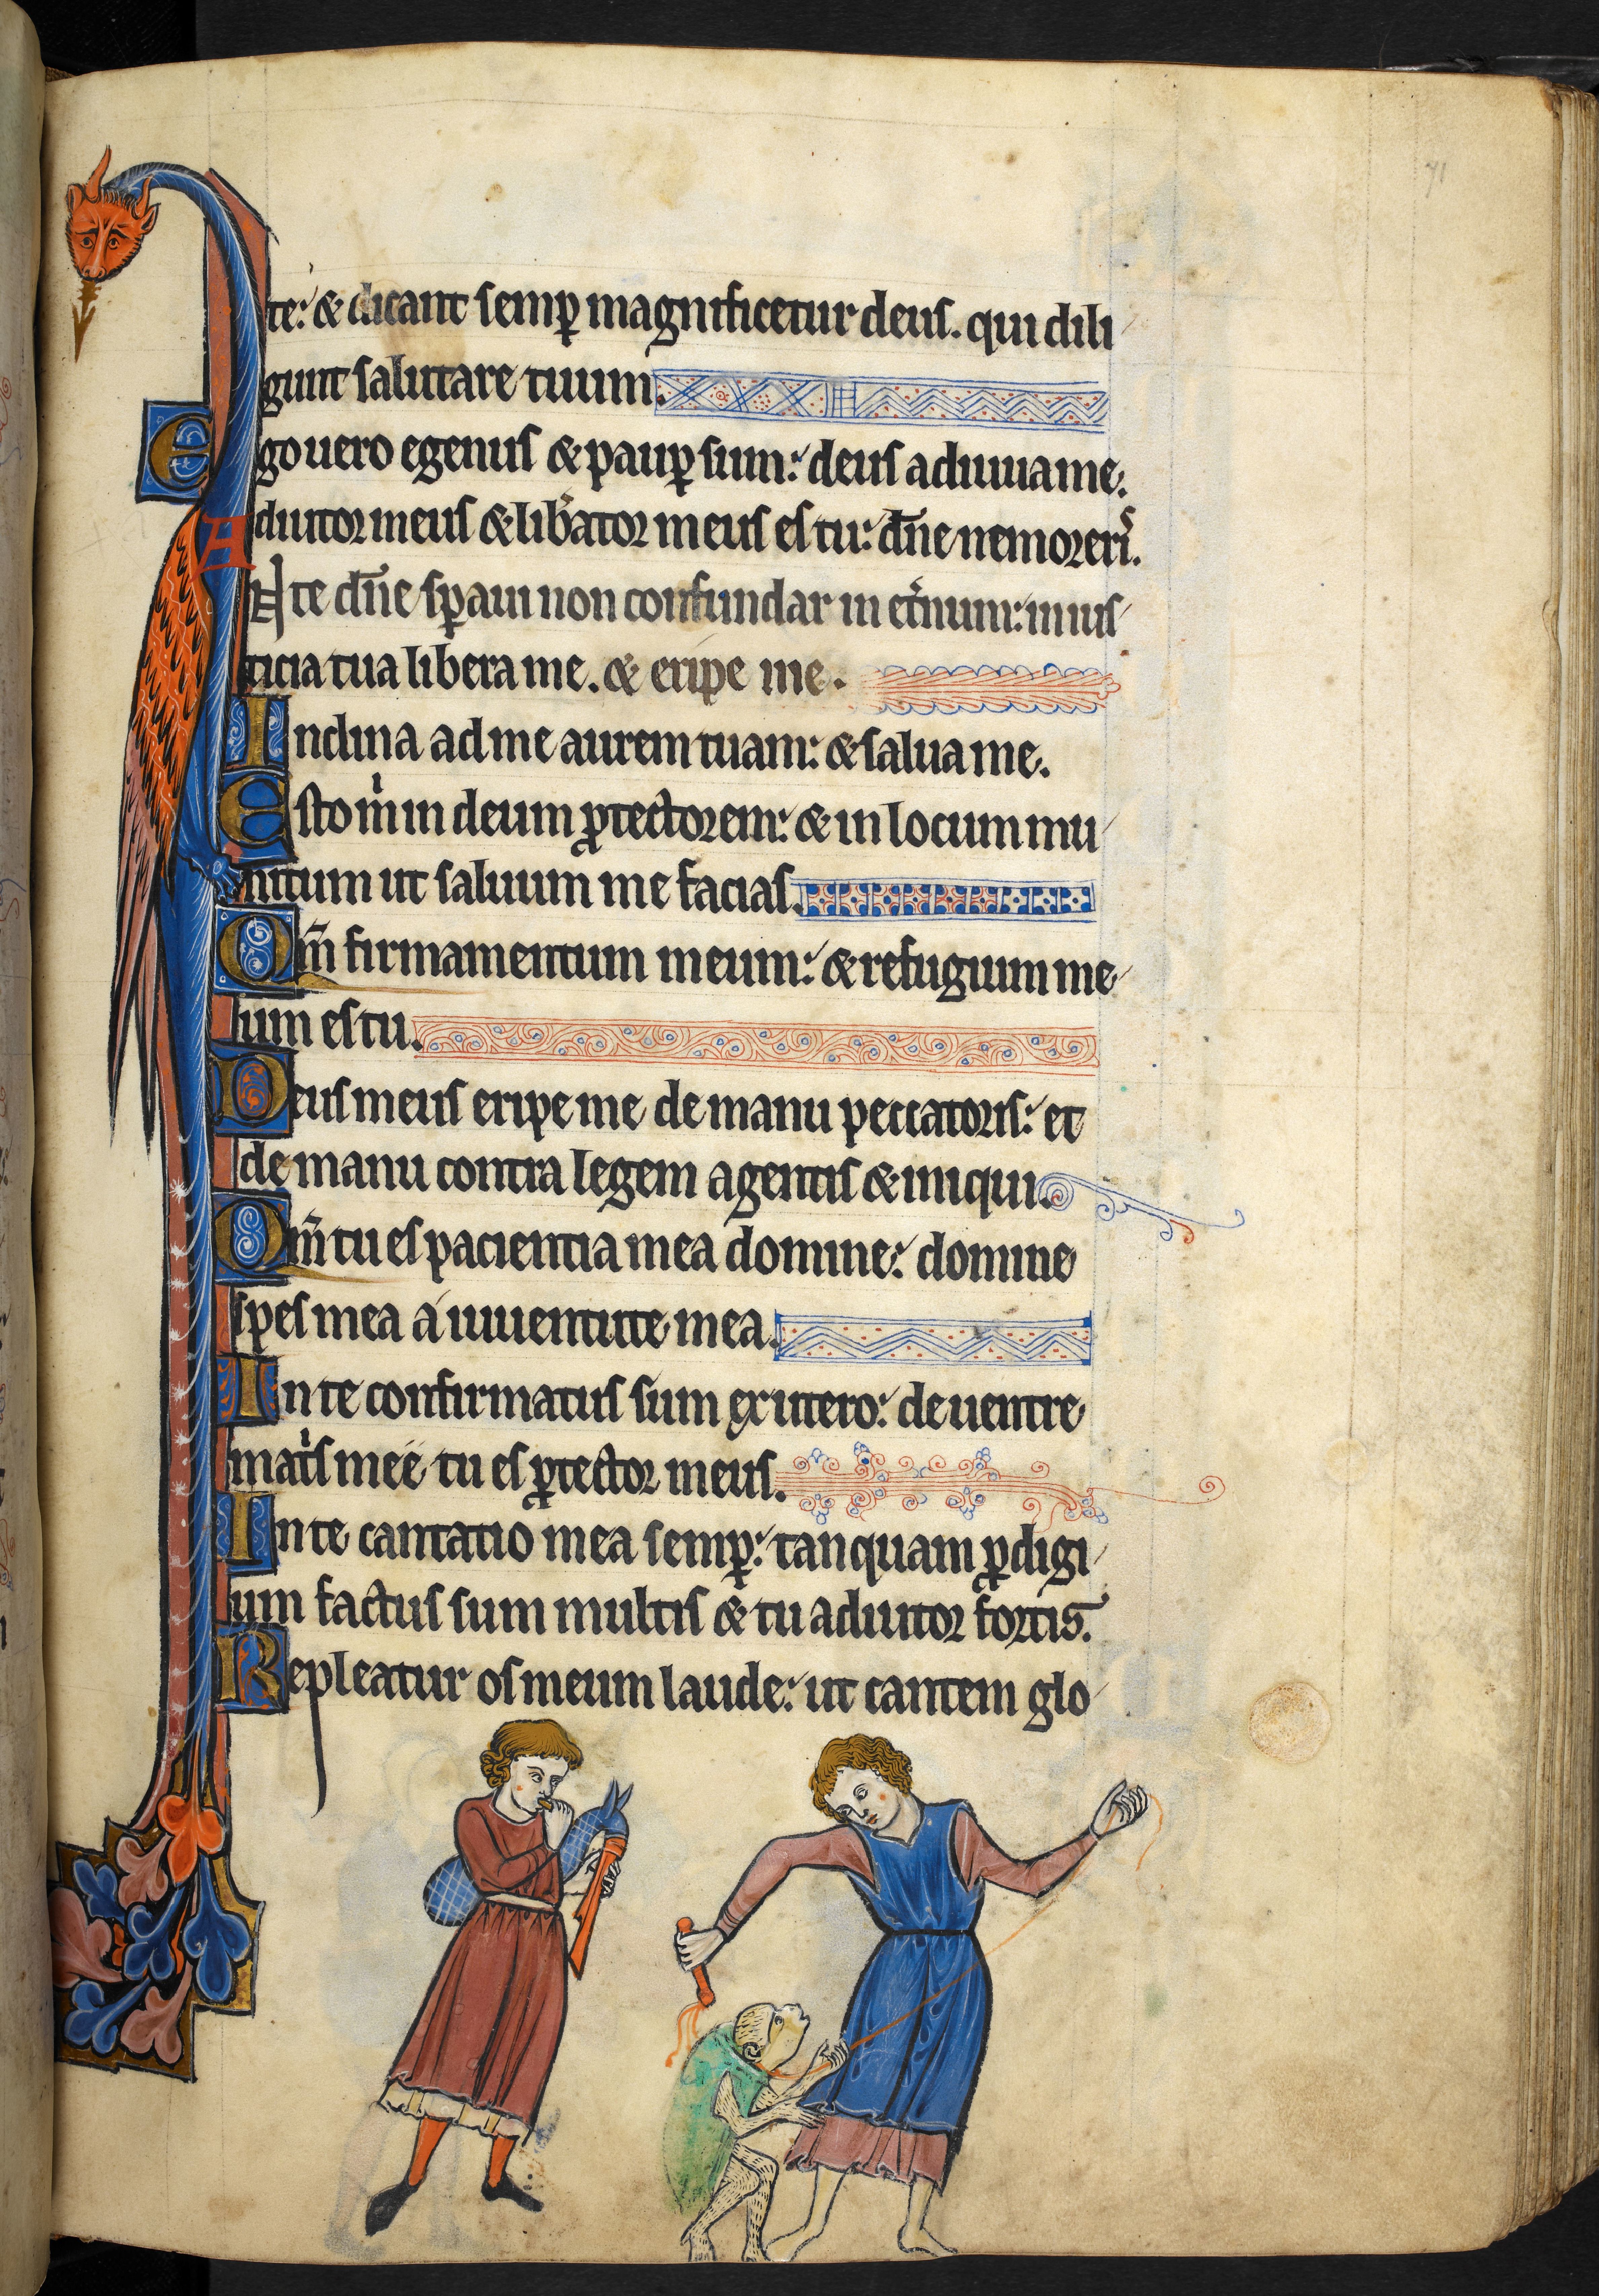 71
te: & dicant semꝑ magnificetur deus. qui dili
gunt salutare tuum.
Ego uero egenus & pauꝑ sum: deus adiuua me.
Adiutor meus & lib̾ator meus es tu: dn̄e ne moreri᷒.
IN te dn̄e sꝑaui non confundar in et̾num: in ius
ticia tua libera me. & eripe me.
Inclina ad me aurem tuam: & salua me.
Esto mͥ in deum ꝓtectorem: & in locum mu
nitum ut saluum me facias.
Qm̄ firmamentum meum: & refugium me
um es tu.
Deus meus eripe me de manu peccatoris: et
de manu contra legem agentis & iniqui.
Qm̄ tu es paciencia mea domine: domine
spes mea a iuuentute mea.
In te confirmatus sum ex utero: de uentre
mat̾s mee tu es ꝓtector meus.
In te cantatio mea semꝑ: tanquam ꝓdigi
um factus sum multis & tu adiutor fortis.
Repleatur os meum laude: ut cantem glo